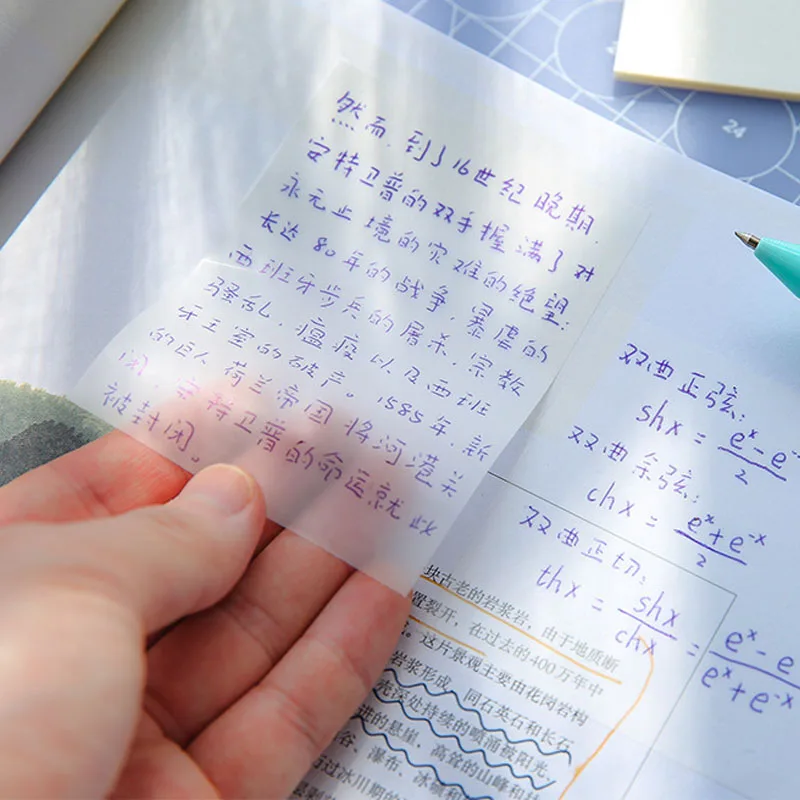 然而,到了16世纪晚期,
安特卫普的双手握满了对
永无止境的灾难的绝望:
长达80年的战争,暴虐的
西班牙步兵的屠杀,宗教
骚乱,瘟疫以及西班
牙王室的破产。1585年,新
的巨人荷兰帝国将河港关
闭,安特卫普的命运就此
被封闭。
24
双曲正弦:
shx = (e^x - e)/2
双曲余弦:
chx = (e^x + e^-x)/2
双曲正切:
thx = shx/chx = (e^x - e)/(e^x + e^-x)
块古老的岩浆岩,由于地质断
置裂开,在过去的400万年中
。这片景观主要由花岗岩构
岩浆形成,同石英石和长石
壳深处持续的喷涌被阳光、
进的悬崖、高耸的山峰和
谷、瀑布、冰碛和
过冰川期的